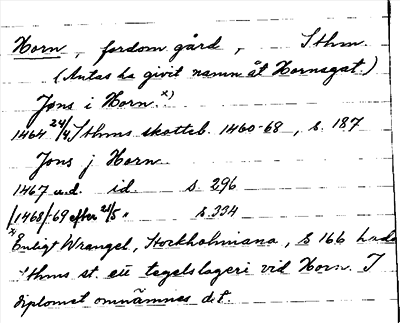 Horn, fordom gård, Sthm.
(Antas ha givit namn åt Hornsgat.)
Jøns i Horn x)
1464 24/4 Sthms skotteb. 1460-68, s. 187
Jons j Horn
1467 u.d. id s. 296
(1468)-69 efter 21/5 " s. 334
x) Enligt Wrangel, Stockholmiana, s 166 hade
Sthms st. ett tegelslageri vid Horn. I
diplomet omnämnes det.